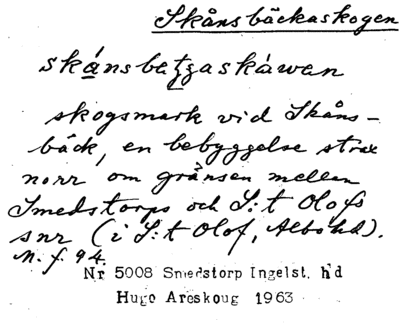 Skånsbäckaskogen
skánsbatgaskáwan
skogsmark vid Skåns-
bäck, en bebyggelse strax
norr om gränsen mellan
Smedstorps och S:t Olofs
snr (i S:t Olof, Albo hd).
N. f. 94.
Nr 5008 Smedstorp Ingelst. hd
Hugo Areskoug 1963